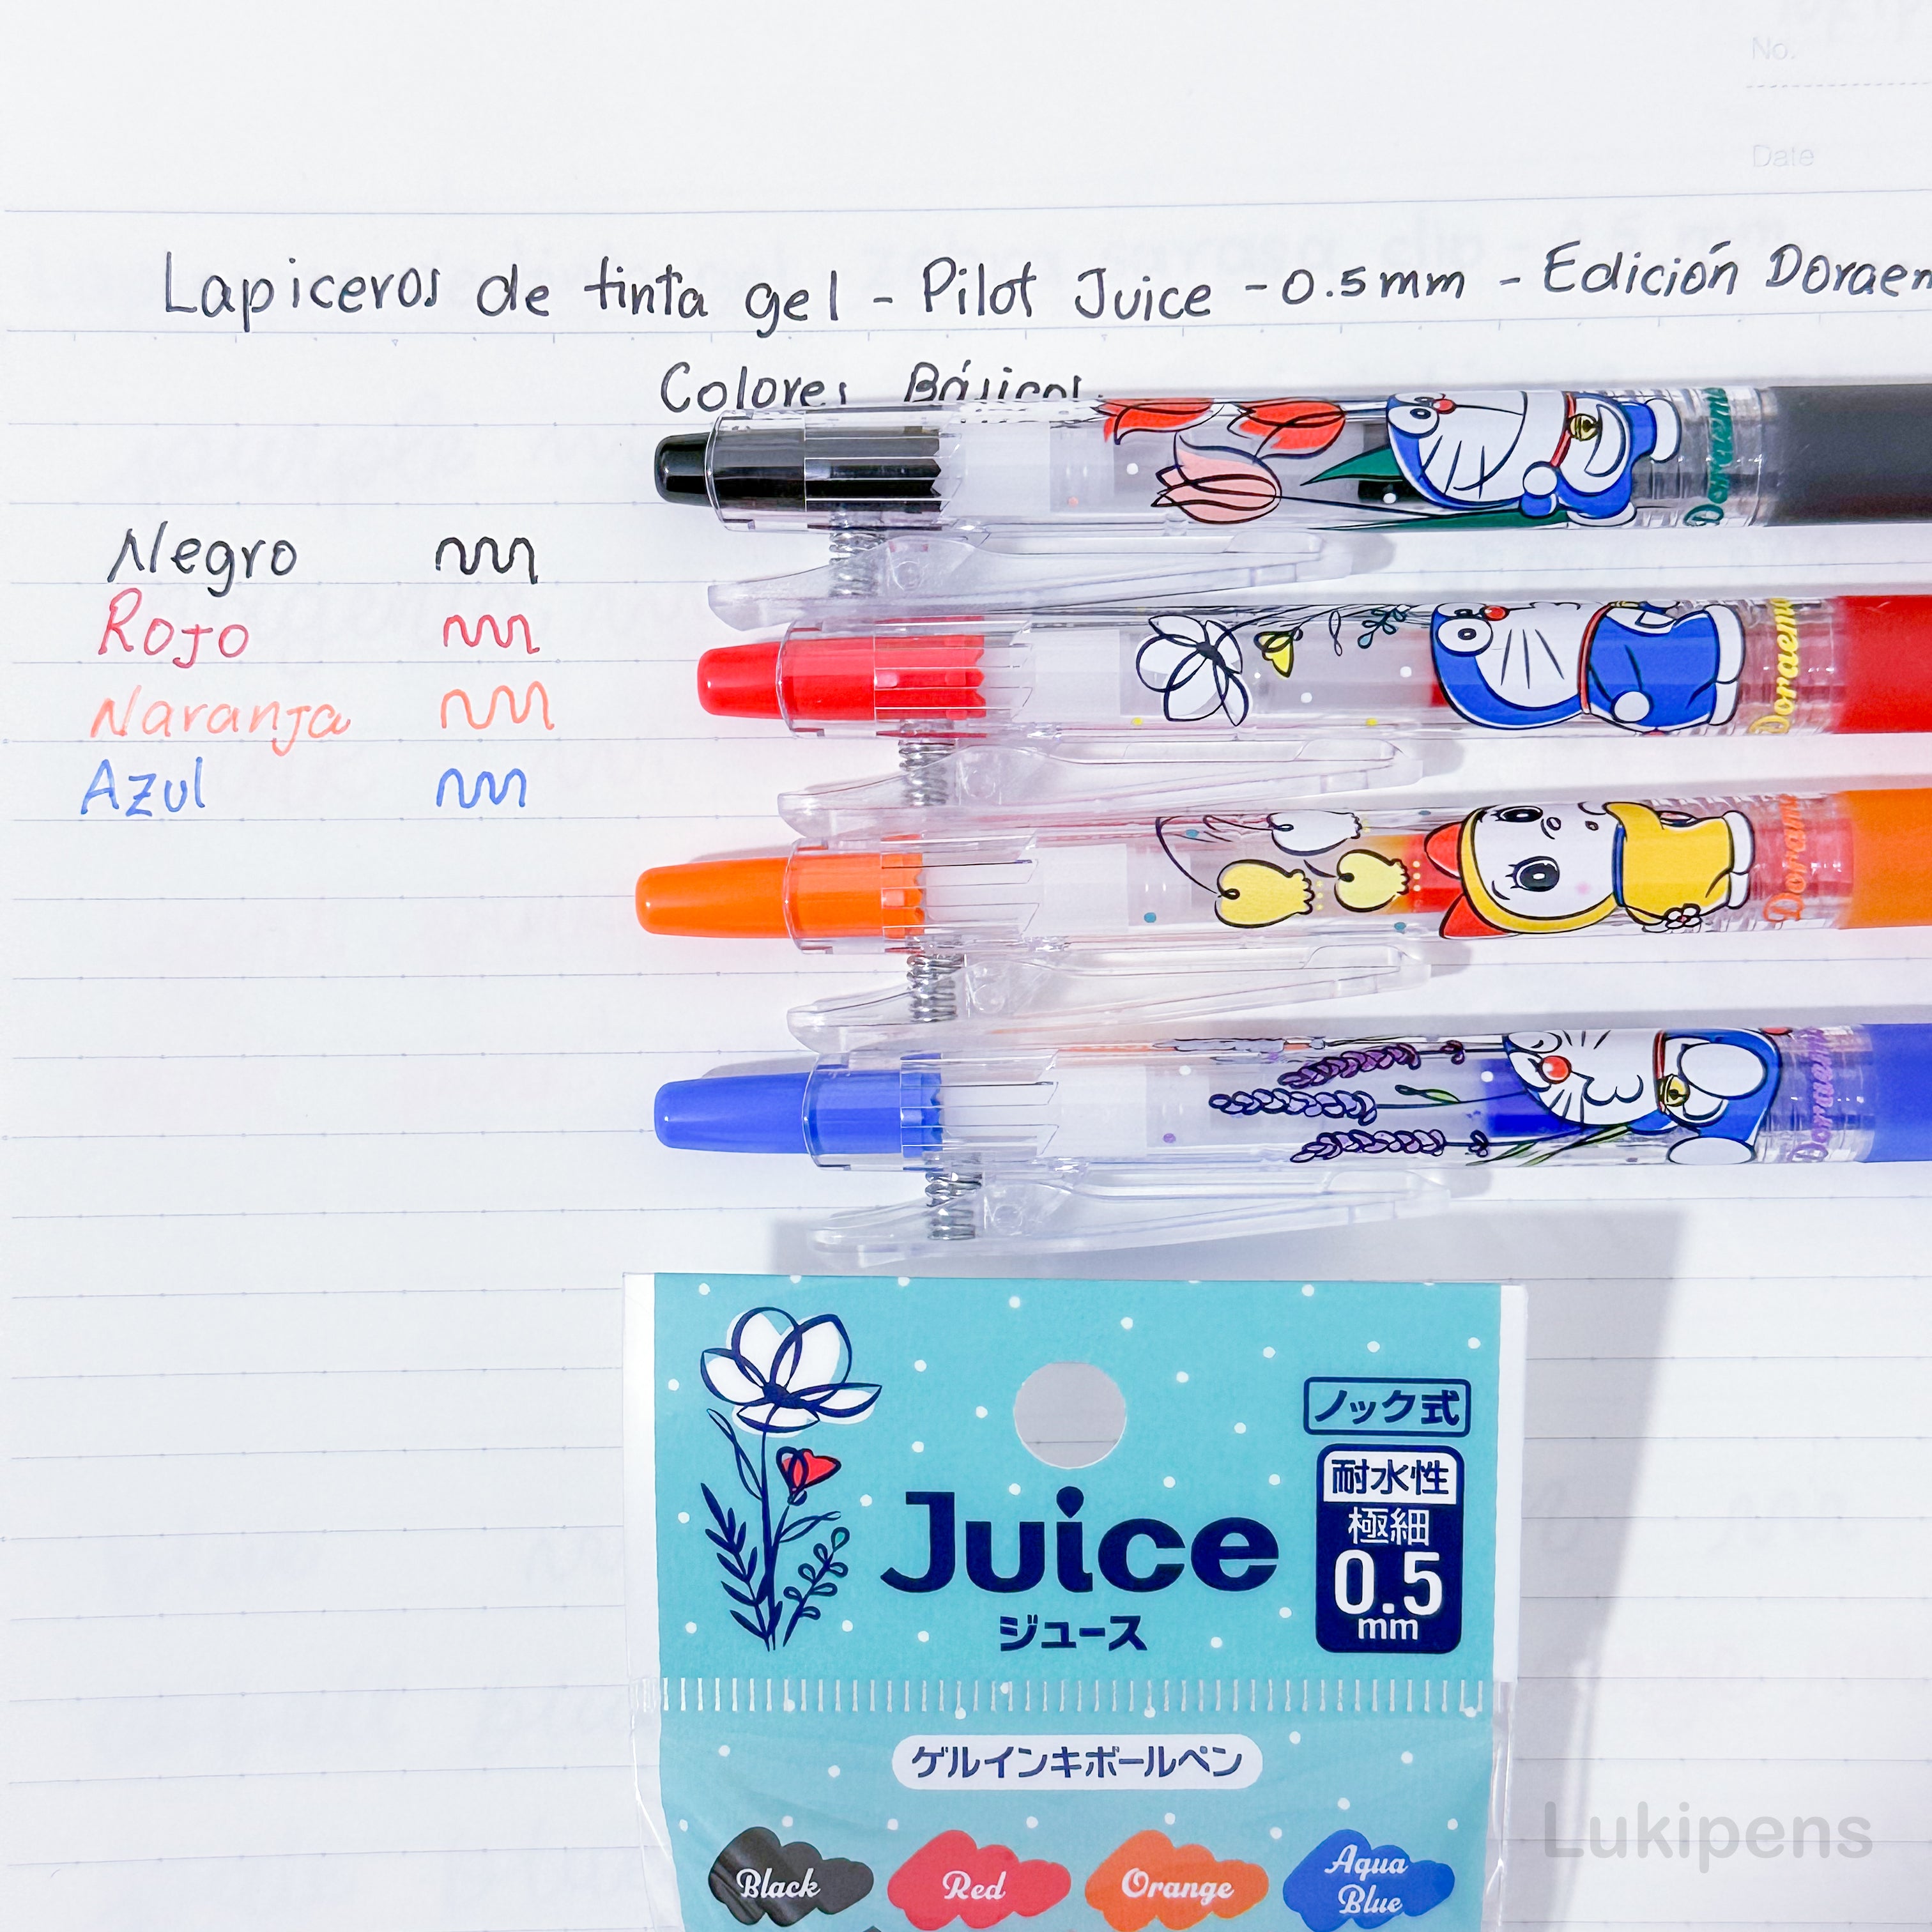 No.
Date
Lapiceros de tinta gel - Pilot Juice - 0.5 mm - Edición Doraem
Colores Básicos
Negro
Rojo
Naranja
Azul
Doraemon
Doraemon
Dorami
Doraemon
ノック式
耐水性
極細
0.5
mm
Juice
ジュース
ゲルインキボールペン
Black
Red
Orange
Aqua
Blue
Lukipens